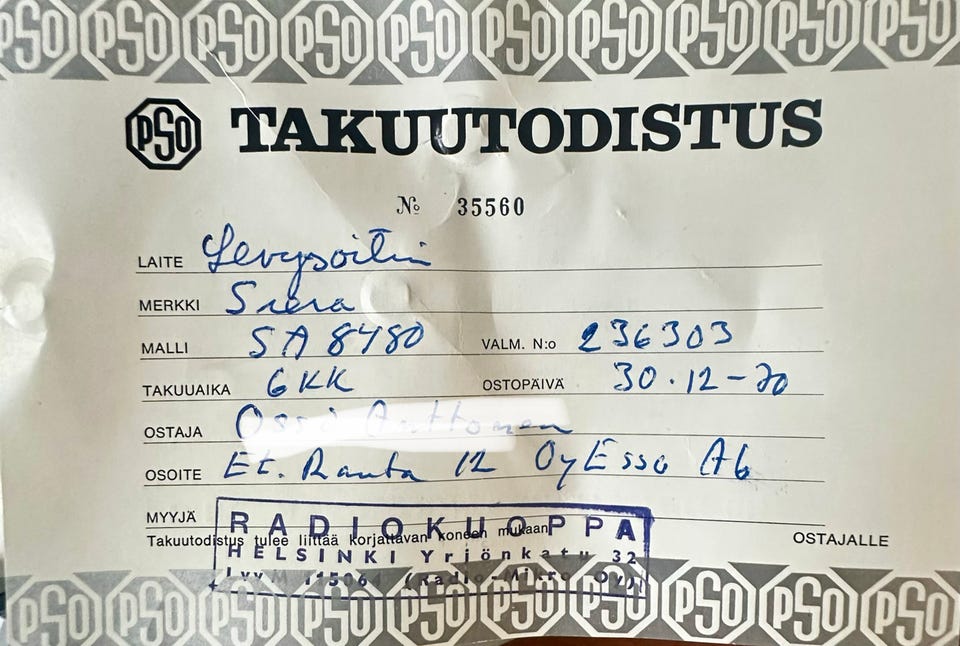 PSO PSO PSO PSO PSO PSO PSO PSO PSO PSO
PSO TAKUUTODISTUS
No 35560
LAITE Levysoitin
MERKKI Siera
MALLI SA 8480 VALM. N:o 236303
TAKUUAIKA 6 KK OSTOPÄIVÄ 30.12-70
OSTAJA
OSOITE Et. Ranta 12 Oy Esso Ab
MYYJÄ RADIOKUOPPA
Takuutodistus tulee liittää korjattavan koneen mukaan OSTAJALLE
HELSINKI Yrjönkatu 32
(Radio-Mikro Oy)
PSO PSO PSO PSO PSO PSO PSO PSO PSO PSO